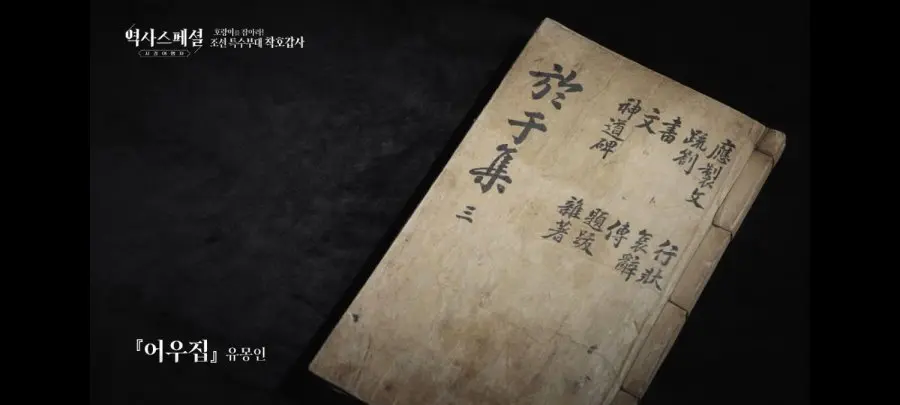 역사스페셜
시간여행자
호랑이를 잡아라!
조선 특수부대 착호갑사
應製文
疏劄
書
文
神道碑
行狀
哀辭
傳
題跋
雜著
於于集 三
『어우집』 유몽인